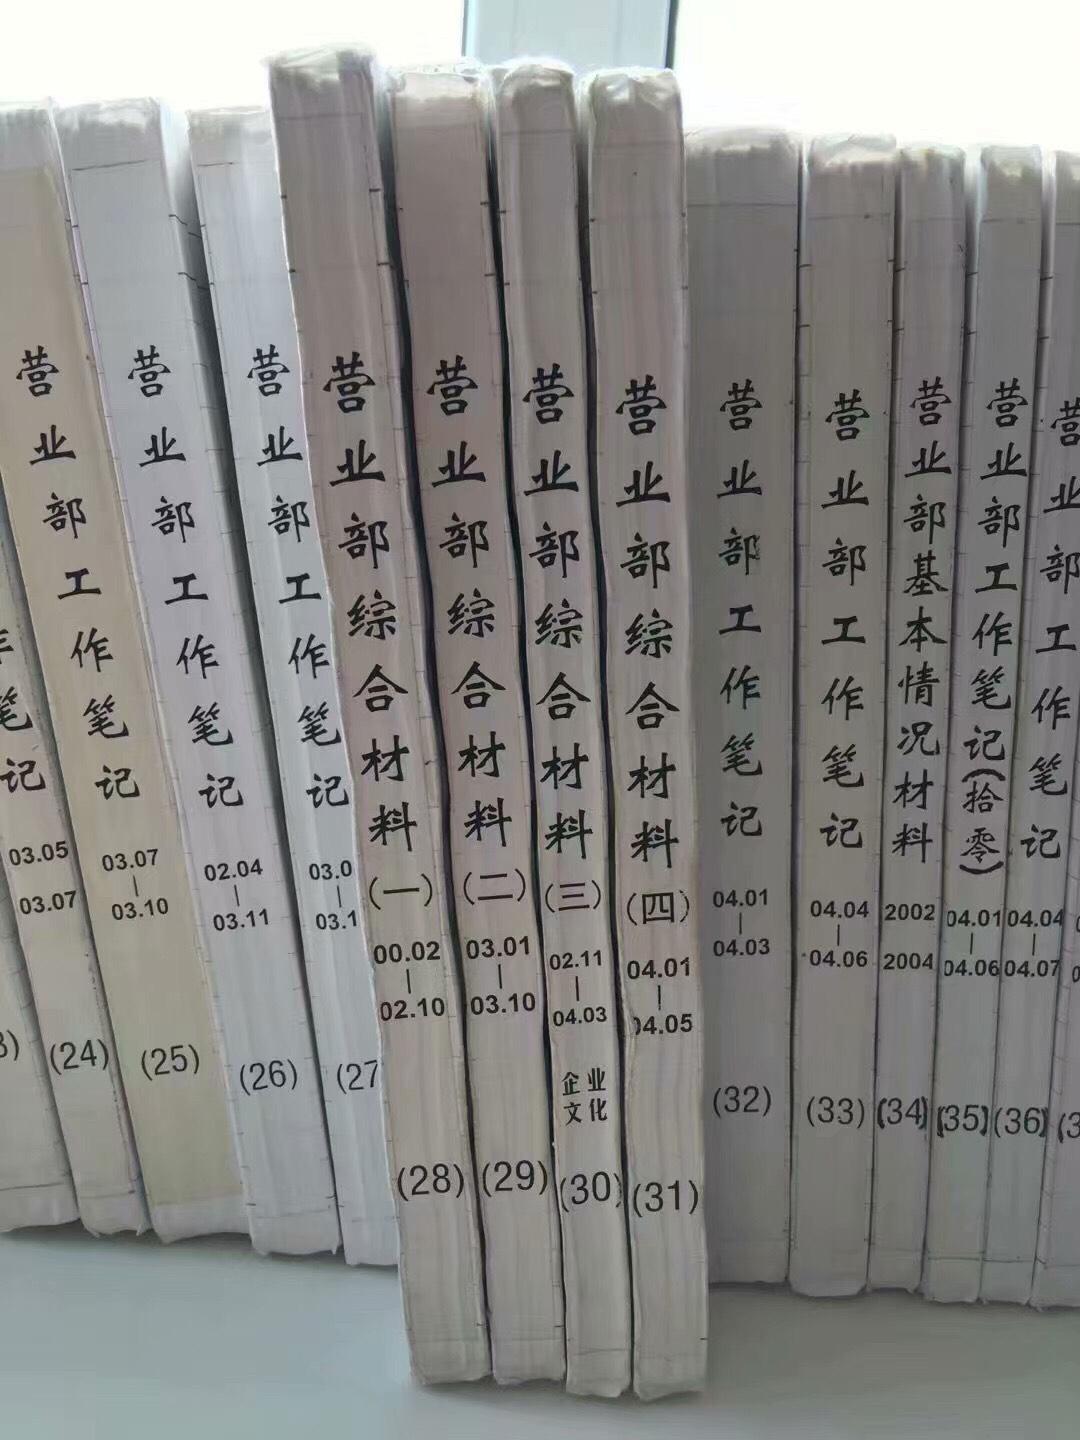 笔记
03.05
03.07
(24)
营业部工作笔记
03.07
03.10
(25)
营业部工作笔记
02.04
03.11
(26)
营业部工作笔记
(27
营业部综合材料(一)
00.02
02.10
(28)
营业部综合材料(二)
03.01
03.10
(29)
营业部综合材料(三)
02.11
04.03
企业
文化
(30)
营业部综合材料(四)
04.01
04.05
(31)
营业部工作笔记
04.01
04.03
(32)
营业部工作笔记
04.04
04.06
(33)
营业部基本情况材料
2002
2004
(34)
营业部工作笔记(拾零)
04.01
04.06
(35)
营业部工作笔记
04.04
04.07
(36)